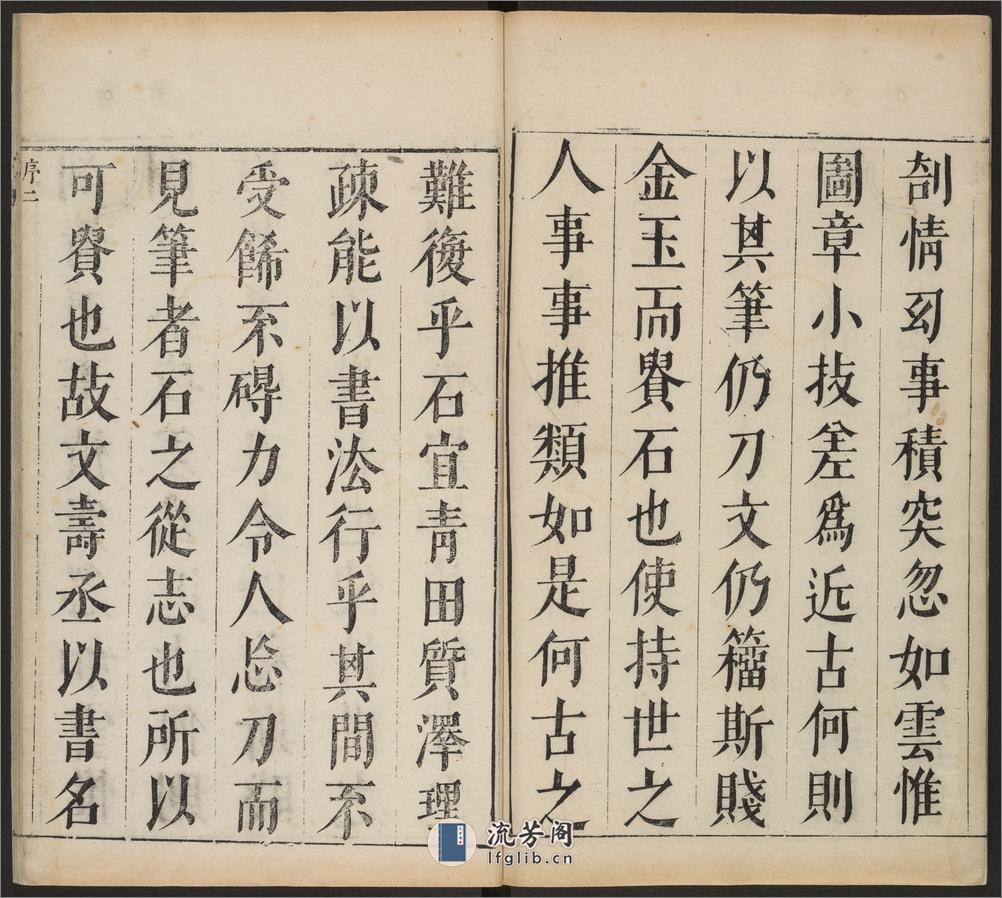 剖情刻事積突忽如雲惟
圖章小技差爲近古何則
以其筆仍刀文仍籀斯賤
金玉而貴石也使持世之
人事事推類如是何古之
難復乎石宜青田質澤理
疎能以書法行乎其間不
受餙不碍力令人忘刀而
見筆者石之從志也所以
可貴也故文壽丞以書名
序二
流芳阁
lfglib.cn